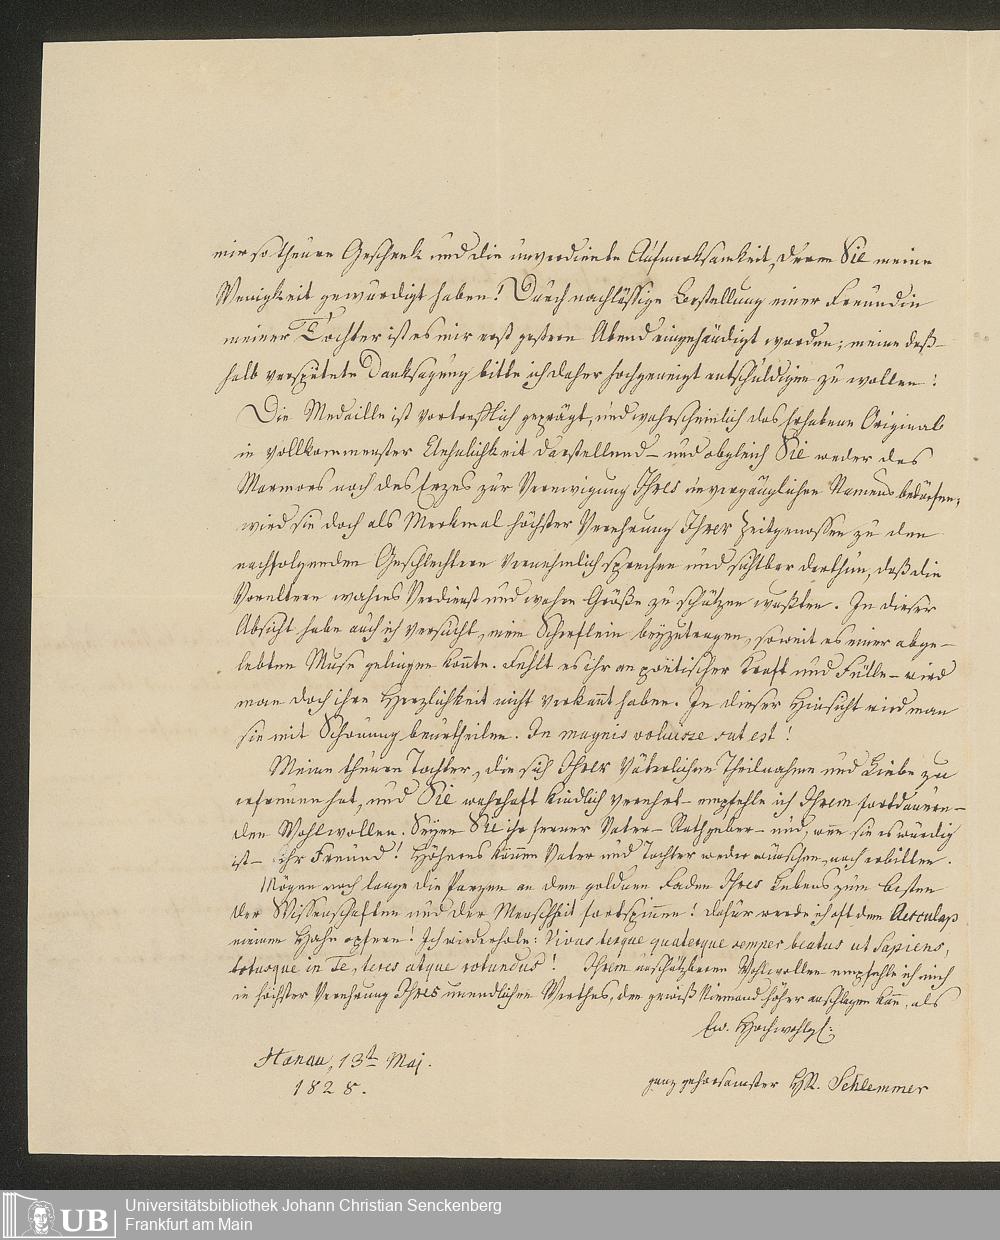 mir so theure Geschenk und die unverdiente Aufmerksamkeit, deren Sie meine
Wenigkeit gewürdigt haben! Durch nachlässige Bestellung einer Freundin
meiner Tochter ist es mir erst gestern Abend eingehändigt worden; meine deß-
halb verspätete Danksagung bitte ich daher hochgeneigt entschuldigen zu wollen!
Die Medaille ist vortrefflich geprägt, und wahrscheinlich das Erhabene Original
in vollkommenster Aehnlichkeit darstellend – und obgleich Sie weder des
Marmors noch des Erzes zur Verewigung Ihres unvergänglichen Namens bedürfen;
wird sie doch als Merkmal höchster Verehrung Ihrer Zeitgenossen zu den
nachfolgenden Geschlechtern vernehmlich sprechen und sichtbar darthun, daß die
Voreltern wahres Verdienst und wahre Größe zu schätzen wußten. In dieser
Absicht habe auch ich versucht, mein Scherflein beyzutragen, soweit es einer abge-
lebten Muse gelingen konnte. Fehlt es ihr an poëtischer Kraft und Fülle – wird
man doch ihre Herzlichkeit nicht verkannt haben. In dieser Hinsicht wird man
sie mit Schonung beurtheilen. In magnis voluisse sat est!
Meine theure Tochter, die sich Ihrer Väterlichen Theilnahme und Liebe zu
erfreuen hat, und Sie wahrhaft kindlich verehrt – empfehle ich Ihrem fortdauern-
den Wohlwollen. Seyen Sie ihr ferner Vater – Rathgeber – und, wenn sie es würdig
ist – ihr Freund! Höheres können Vater und Tochter weder wünschen, noch erbitten.
Mögen noch lange die Parzen an dem goldnen Faden Ihres Lebens zum besten
der Wissenschaften und der Menschheit fortspinnen! Dafür werde ich oft dem Aesculap
einen Hahn opfern! Ich wiederhole: Vivas terque quaterque semper beatus ut Sapiens,
totusque in Te, teres atque rotundus! Ihrem unschätzbaren Wohlwollen empfehle ich mich
in höchster Verehrung Ihres unendlichen Werthes, den gewiß Niemand höher anschlagen kann, als
Ew. Hochwohlgb:
Hanau, 13t Maj.
1828.
ganz gehorsamster HR. Schlemmer
Universitätsbibliothek Johann Christian Senckenberg
Frankfurt am Main
UB